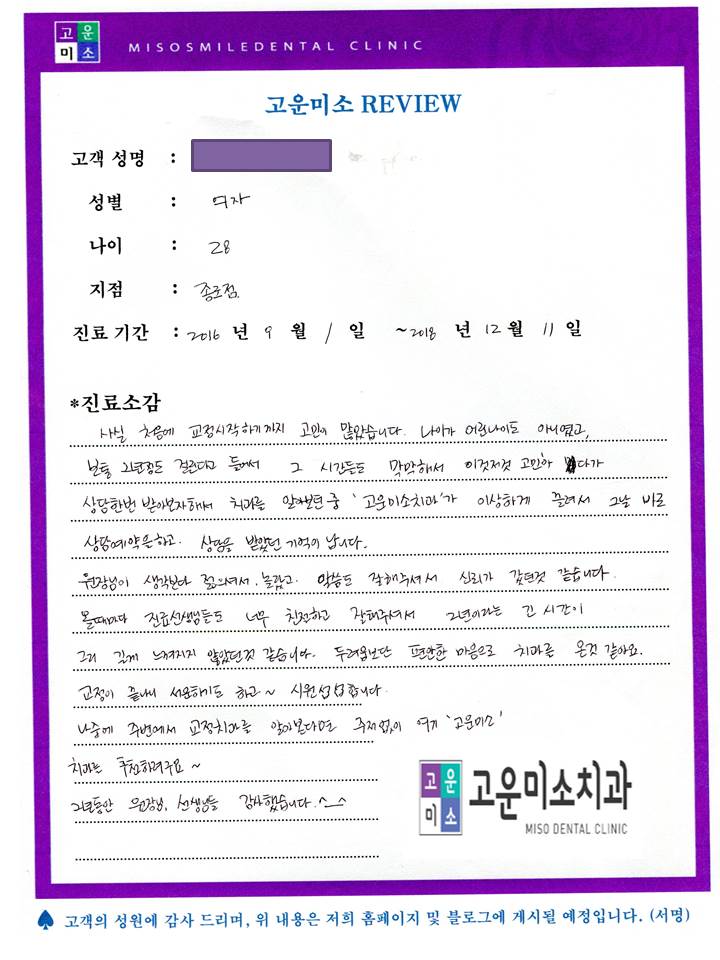 고운
미소
MISOSMILEDENTAL CLINIC
고운미소 REVIEW
고객 성명 :
성별 : 여자
나이 : 28
지점 : 종로점
진료 기간 : 2016 년 9 월 1 일 ~2018 년 12 월 11 일
*진료소감
사실 처음에 교정시작하기까지 고민이 많았습니다. 나이가 어린나이도 아니였고,
보통 2년정도 걸린다고 들어서 그 시간들도 막막해서 이것저것 고민하다가
상담한번 받아보자해서 치과를 알아보던 중 '고운미소치과'가 이상하게 끌려서 그날 바로
상담예약을하고. 상담을 받았던 기억이 납니다.
원장님이 생각보다 젊으셔서 놀랐고. 말씀도 잘해주셔서 신뢰가 갔던것 같습니다.
올때마다 진료선생님들도 너무 친절하고 잘해주셔서 2년이라는 긴 시간이
그리 길게 느껴지지 않았던것 같습니다. 두려움보단 편안한 마음으로 치과를 온것 같아요.
교정이 끝나니 서운하기도 하고~ 시원섭섭합니다.
나중에 주변에서 교정치과를 알아본다면 주저없이 여기 '고운미소'
치과는 추천하려구요~
2년동안 원장님, 선생님들 감사했습니다. ^_^
고운
미소
고운미소치과
MISO DENTAL CLINIC
♠ 고객의 성원에 감사 드리며, 위 내용은 저희 홈페이지 및 블로그에 게시될 예정입니다. (서명)